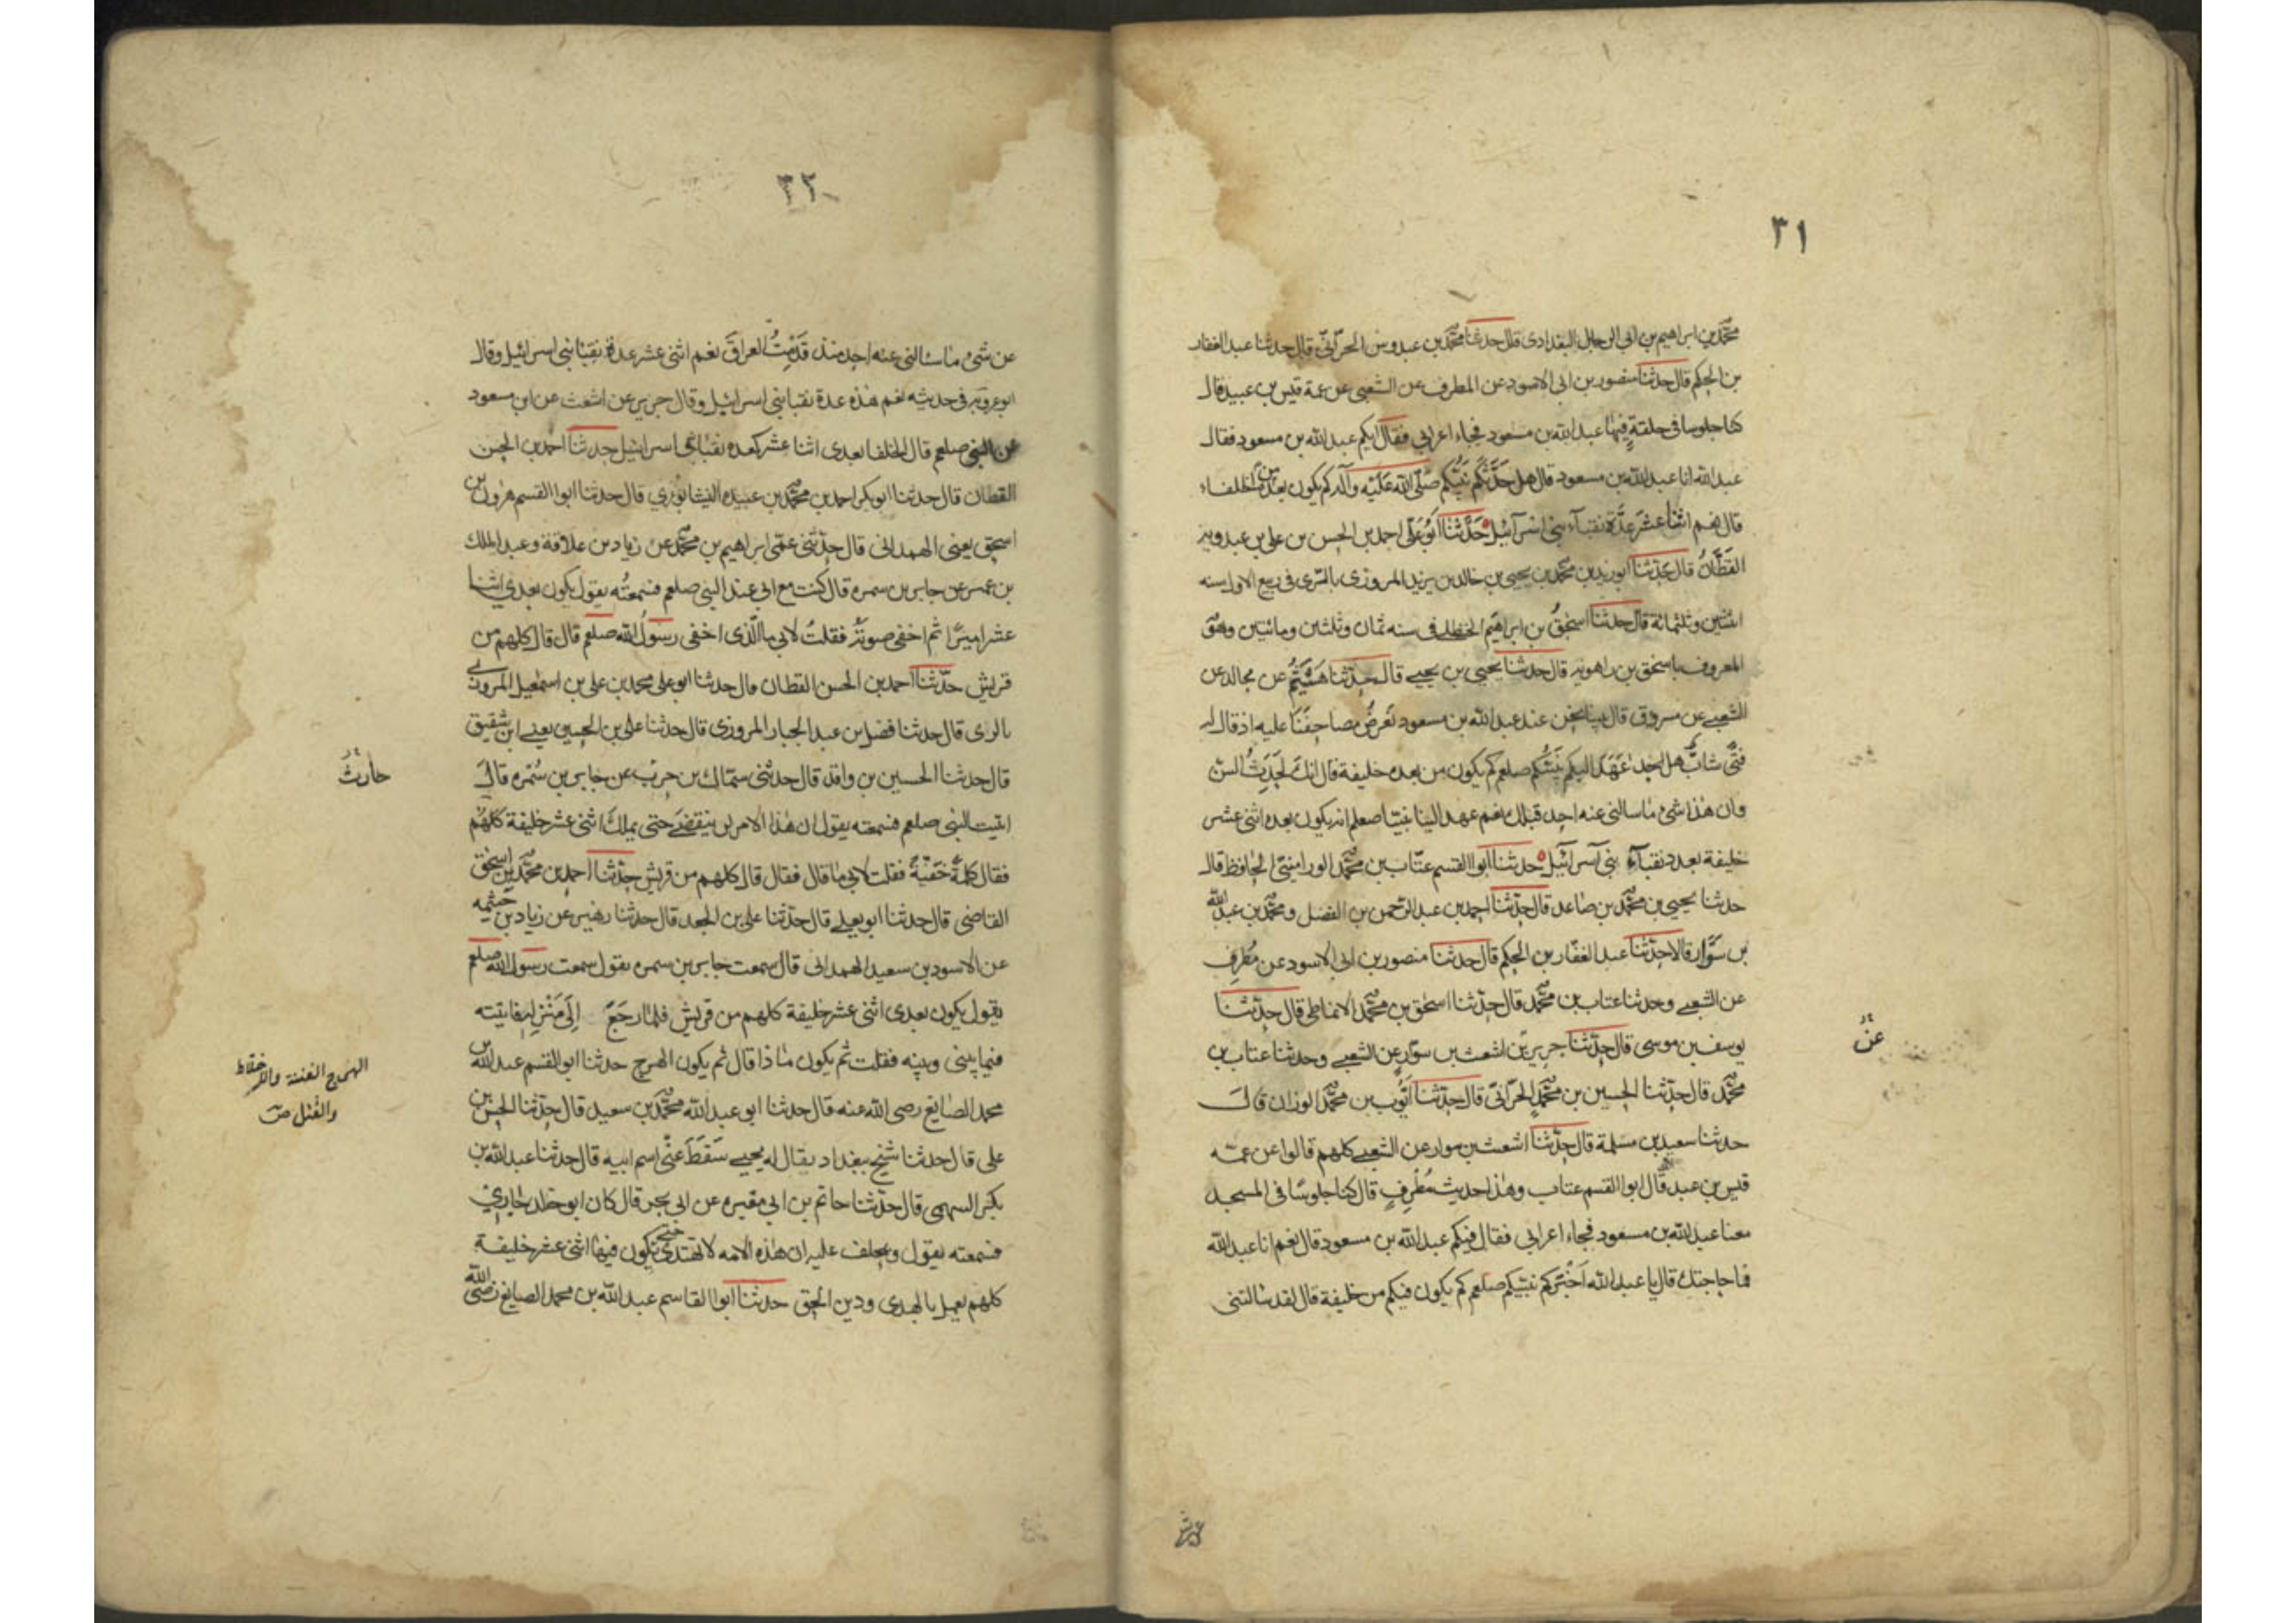 ٣١
محمد بن ابراهيم بن ابي الرجال البغدادى قال حدثنا محمد بن عبدوس الحرّانيّ قال حدثنا عبد الغفار
بن الحكم قال حدثنا منصور بن ابى الاسود عن المطرف عن الشعبى عن عمه قيس بن عبيد قال
كنا جلوسا فى حلقةٍ فيها عبد الله بن مسعود فجاء اعرابي فقال ايكم عبد الله بن مسعود فقال
عبد الله انا عبد الله بن مسعود قال هل حَدَّثَكُم نَبيّكم صَلّى الله عَلَيْه وَآله كم يكون بعده من الخلفاء
قال نعم اثنا عشَر عِدّة نقبآء بنى اسرآئيل حَدَّثَنَا اَبُو عَلىّ احمد بن الحسن بن على بن عبدويه
القَطَّانُ قال حَدّثنا ابو يزيد بن محمد بن يحيى بن خالد بن يزيد المروزى بالرّى فى ربيع الاول سنه
اثنتين وثلثمائة قال حدثنا اسحٰقُ بن ابراهيم الحنظلى فى سنه ثمان وثلثين ومائتين وهُوَ
المعروف باسحٰق بن راهويه قال حدثنا يحيى بن يحيى قال حدّثنا هُشَيْمٌ عن مجالد عن
الشعبى عن مسروق قال بينا نحن عند عبد الله بن مسعود نَعرضُ مصاحِفَنَا عليه اذ قال له
فتًى شابٌّ هل عَهَدَ اليكم نَبيّكُم صلعم كم يكون من بعده خليفة قال انكَ لحَدَثُ السنّ
وان هذا شئ ما سالنى عنه احد قبلك نعم عهد الينا نبيّنا صعلم انه يكون بعده اثنى عشر
خليفة بعدد نقبآء بنى اسرآئيل حدثنا ابوا القسم عتّاب بن محمّد الوراميني الحافظ قال
حدثنا يحيى بن محمّد بن صاعد قال حدّثنا احمد بن عبد الرّحمن بن الفضل و محمّد بن عبد الله
بن سَوّار قالا حدّثنا عبد الغفّار بن الحكم قال حدثنا منصور بن ابى الاسود عن مُطرِف
عن الشعبى وحدثنا عتاب بن محمّد قال حدّثنا اسحٰق بن محمّد الانماطى قال حدّثنا
يوسف بن موسى قال حدّثنا جرير بن اشعث بن سوّار عن الشعبى وحدثنا عتاب بن
عنْ
محمّد قال حدّثنا الحسين بن محمّد الحرّانىّ قال حدّثنا اَيّوب بن محمّد الوزان قالَ
حدثنا سعيد بن مسلمة قال حدّثنا اشعث بن سوار عن الشعبى كلهم قالوا عن عمّه
قيس بن عبد قال ابوا القسم عتاب وهٰذا حديث مُطرِفٍ قال كنا جلوسًا فى المسجد
معنا عبد الله بن مسعود فجاء اعرابى فقال فيكم عبد الله بن مسعود قال نعم انا عبد الله
فما حاجتك قال يا عبد الله اَخْبَركم نبيّكم صلعم كم يكون فيكم من خليفة قال لقد سالتنى
٣٢
عن شئ ما سالنى عنه احد منذ قَدِمْتُ العراقَ نعم اثنى عشر عدة نقبا بنى اسرائيل وقال
ابو عروبه فى حديثه نعم هذه عدة نقبا بنى اسرائيل وقال جرير عن اشعث عن ابن مسعود
عن النبى صلعم قال الخلفا بعدى اثنا عشر كعده نقبا بنى اسرائيل حدثنا احمد بن الحسن
القطان قال حدثنا ابو بكر احمد بن محمّد بن عبيده النيشابورى قال حدثنا ابوا القسم هرون بن
اسحق يعنى الهمدانى قال حدّثنى عمّى ابراهيم بن محمّد عن زياد بن علاقة و عبد الملك
بن عمير عن جابر بن سمره قال كنت مع ابى عند النبى صلعم فسمعتُه يقول يكون بعدى اثنا
عشر اميرًا ثم اخفى صوتَهُ فقلتُ لابى ما الّذى اخفى رسولُ الله صلعم قال قال كلهم من
قريش حدّثنا احمد بن الحسن القطان قال حدثنا ابو على محمد بن على بن اسمٰعيل المروزى
بالرى قال حدثنا فضل بن عبد الجبار المروزى قال حدثنا على بن الحسين يعنى ابن شقيق
قال حدثنا الحسين بن واقد قال حدثنى سمّاك بن حرْب عن جابر بن سُمْره قالَ
حارث
اتيت النبى صلعم فسمعته يقول ان هٰذا الامر لن ينقضىَ حتى يملكَ اثنى عشر خليفة كلهُم
فقال كلمةً خَفيّةً فقلت لابى ما قال فقال قال كلهم من قريش حدّثنا احمد بن محمّد بن اسحٰق
القاضى قال حدثنا ابو يعلى قال حدّثنا على بن الجعد قال حدثنا زهير عن زياد بن خيثمه
عن الاسود بن سعيد الهمدانى قال سمعت جابر بن سمره يقول سمعت رسول الله صلعم
يقول يكون بعدى اثنى عشر خليفة كلهم من قريش فلما رجَعَ اِلَى مَنْزِلِهِ فاتيته
فيما بينى وبينه فقلت ثم يكون ما ذا قال ثم يكون الهرج حدثنا ابو القسم عبد الله بن
الهرج الفتنة والاختلاط
والقتل صح
محمد الصايغ رضى الله عنه قال حدثنا ابو عبد الله محمّد بن سعيد قال حدّثنا الحسن بن
على قال حدثنا شيخ ببغداد يقال له يحيى سَقَطَ عنّى اسم ابيه قال حدثنا عبد الله بن
بكر السهمى قال حدّثنا حاتم بن ابى مغيره عن ابى بحر قال كان ابو خلد جارى
فسمعته يقول ويحلف عليه ان هٰذه الامه لا تهتدى حتى يكون فيها اثنى عشر خليفة
كلهم يعمل بالهدى ودين الحق حدثنا ابوا القاسم عبد الله بن محمد الصايغ رضى الله